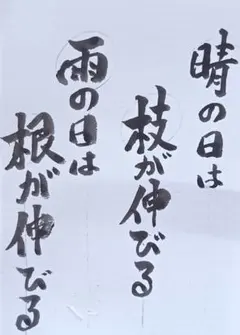 晴の日は
枝が伸びる
雨の日は
根が伸びる